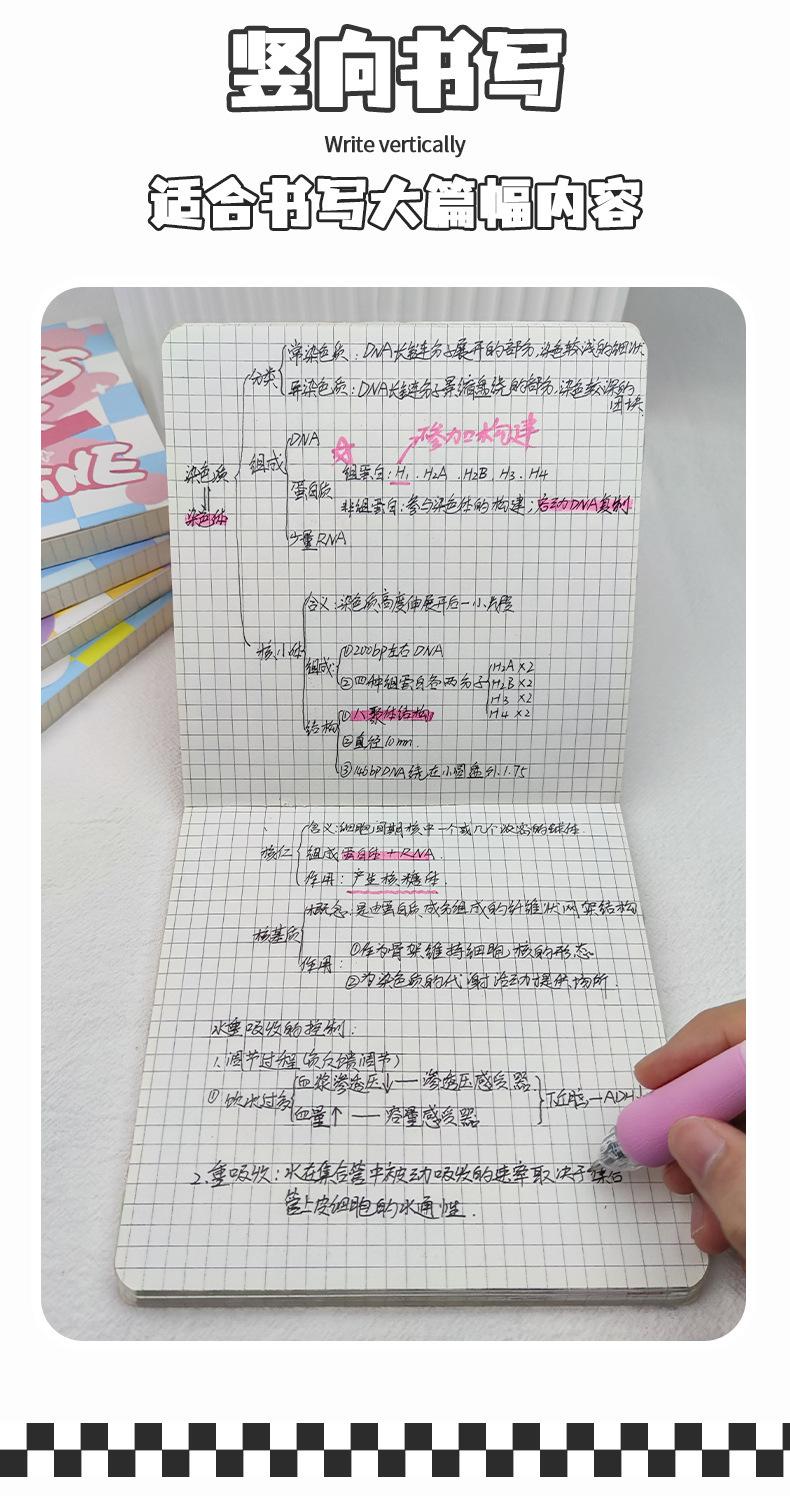 竖向书写
Write vertically
适合书写大篇幅内容
INE
分类
常染色质：DNA长链分子展开的部分，染色较浅的细状
异染色质：DNA长链分子紧缩盘绕的部分，染色较深的
团块
染色质
染色体
组成
DNA
参加构建
蛋白质
组蛋白：H1 . H2A . H2B . H3 . H4
非组蛋白：参与染色体的构建；启动DNA复制
少量RNA
核小体
含义：染色质高度伸展开后一小片段
组成：
①200bp左右DNA
②四种组蛋白各两分子
H2A ×2
H2B ×2
H3 ×2
H4 ×2
结构
①八聚体结构
②直径10nm.
③146bpDNA绕在小圆盘外1.75
核仁
含义：细胞间期核中一个或几个浓密的球体.
组成 蛋白体 + RNA.
作用：产生核糖体
核基质
概念：是由蛋白质成分组成的纤维状网架结构
作用：
①作为骨架维持细胞核的形态
②为染色质的代谢活动提供场所.
水重吸收的控制：
1.调节过程(负反馈调节)
①饮水过多
血浆渗透压↓—渗透压感受器
血量↑ — 容量感受器
下丘脑—ADH↓
2.重吸收：水在集合管中被动吸收的速率取决于集合
管上皮细胞的水通性.